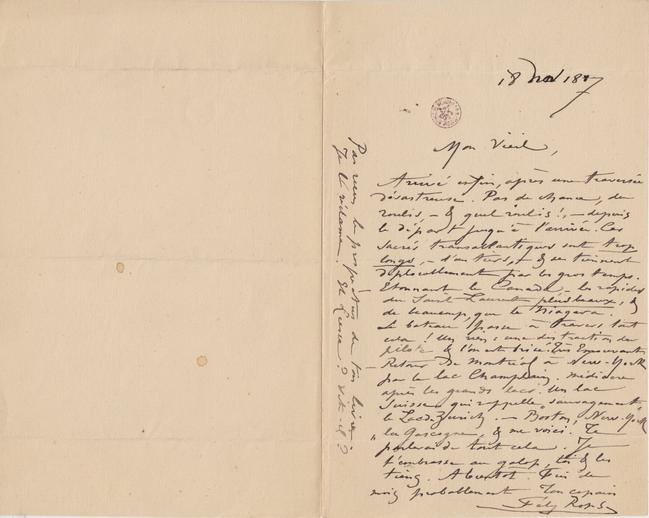 18 Nov 1887
Mon Vieil,
Arrivé enfin, après une traversée
désastreuse. Pas de chance, du
roulis, – & quel roulis! , – depuis
le départ jusqu'à l'arrivée. Ces
sacrés transatlantiques sont trop
longs, – & se tiennent
déplorablement par les gros temps.
– Etonnant le Canada, les rapides
du Saint Laurent plus beaux, &
de beaucoup, que le Niagara.
Le bateau passe à travers tout
cela! Un rien, une distraction de
pilote & l'on est brisé. Très Emouvant
– Retour de Montréal à New-York
par le lac Champlain. médiocre
après les grands lacs. Un lac
Suisse qui rappelle sauvagement
le Lac de Zurich. – Boston, New-York
"la Gascogne", & me voici. Te
parlerai de tout cela. Je
t'embrasse au galop, toi & les
tiens. A bientôt. Fin de
mois probablement Ton copain
Fély Rops
Pas reçu le prospectus de ton livre.
Je le réclame. Et Liesse? Vit-il?